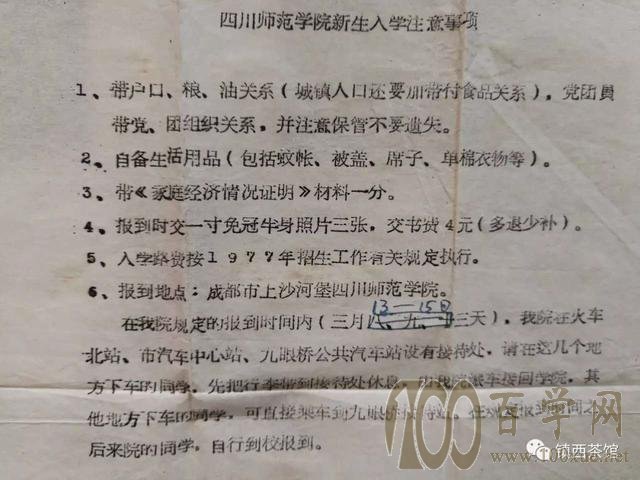 四川师范学院新生入学注意事项
1、带户口、粮、油关系（城镇人口还要加带付食品关系），党团员
带党、团组织关系，并注意保管不要遗失。
2、自备生活用品（包括蚊帐、被盖、席子、单棉衣物等）。
3、带《家庭经济情况证明》材料一分。
4、报到时交一寸免冠半身照片三张，交书费4元（多退少补）。
5、入学路费按1977年招生工作有关规定执行。
6、报到地点：成都市上沙河堡四川师范学院。
13—15日
在我院规定的报到时间内（三月 三天），我院在火车
北站、市汽车中心站、九眼桥公共汽车站设有接待处，请在这几个地
方下车的同学，先把行李带到接待处休息，由我院派车接回学院，其
他地方下车的同学，可直接乘车到九眼桥接待站。在规定报到时间
后来院的同学，自行到校报到。
100百学网
www.100xue.net
镇西茶馆